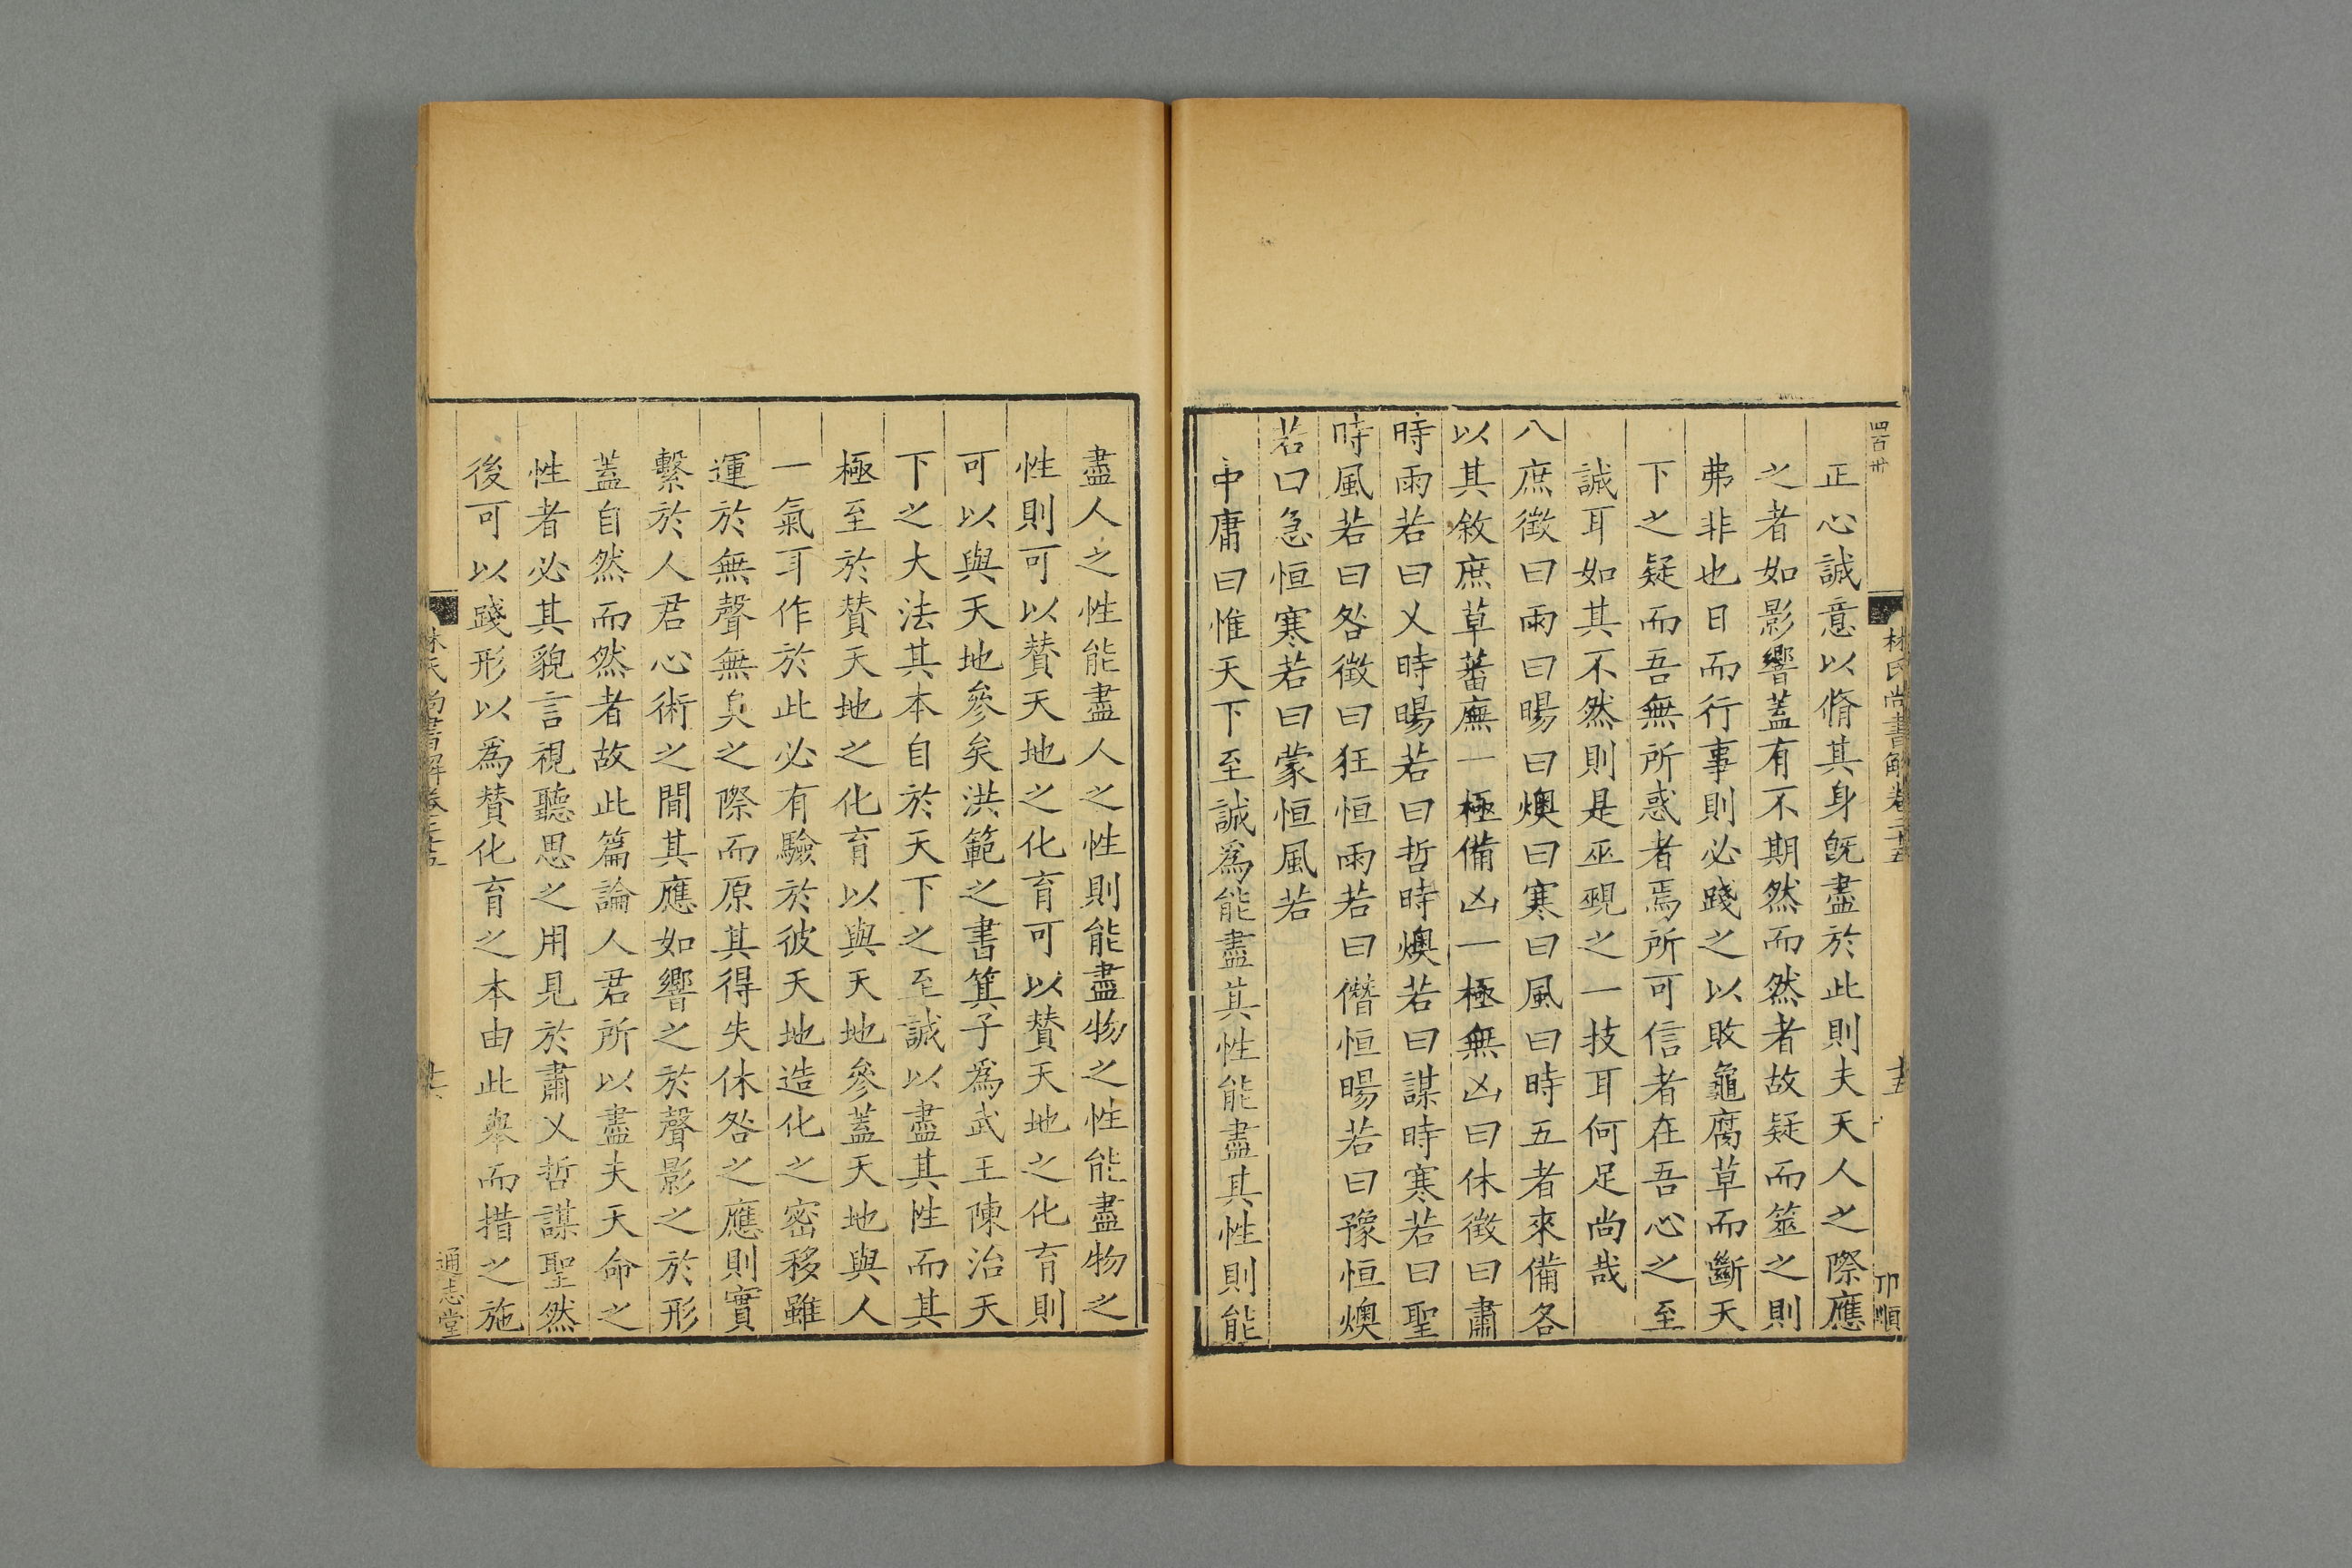 四百廿
林氏尚書解卷二十五
十五
卬順
正心誠意以脩其身旣盡於此則夫天人之際應
之者如影響蓋有不期然而然者故疑而筮之則
弗非也日而行事則必踐之以敗龜腐草而斷天
下之疑而吾無所惑者焉所可信者在吾心之至
誠耳如其不然則是巫覡之一技耳何足尚哉
八庶徵曰雨曰暘曰燠曰寒曰風曰時五者來備各
以其敘庶草蕃廡一極備凶一極無凶曰休徵曰肅
時雨若曰乂時暘若曰哲時燠若曰謀時寒若曰聖
時風若曰咎徵曰狂恒雨若曰僭恒暘若曰豫恒燠
若曰急恒寒若曰蒙恒風若
中庸曰惟天下至誠爲能盡其性能盡其性則能
盡人之性能盡人之性則能盡物之性能盡物之
性則可以贊天地之化育可以贊天地之化育則
可以與天地參矣洪範之書箕子爲武王陳治天
下之大法其本自於天下之至誠以盡其性而其
極至於贊天地之化育以與天地參蓋天地與人
一氣耳作於此必有驗於彼天地造化之密移雖
運於無聲無臭之際而原其得失休咎之應則實
繫於人君心術之閒其應如響之於聲影之於形
蓋自然而然者故此篇論人君所以盡夫天命之
性者必其貌言視聽思之用見於肅乂哲謀聖然
後可以踐形以爲贊化育之本由此舉而措之施
林氏尚書解卷二十五
十六
通志堂